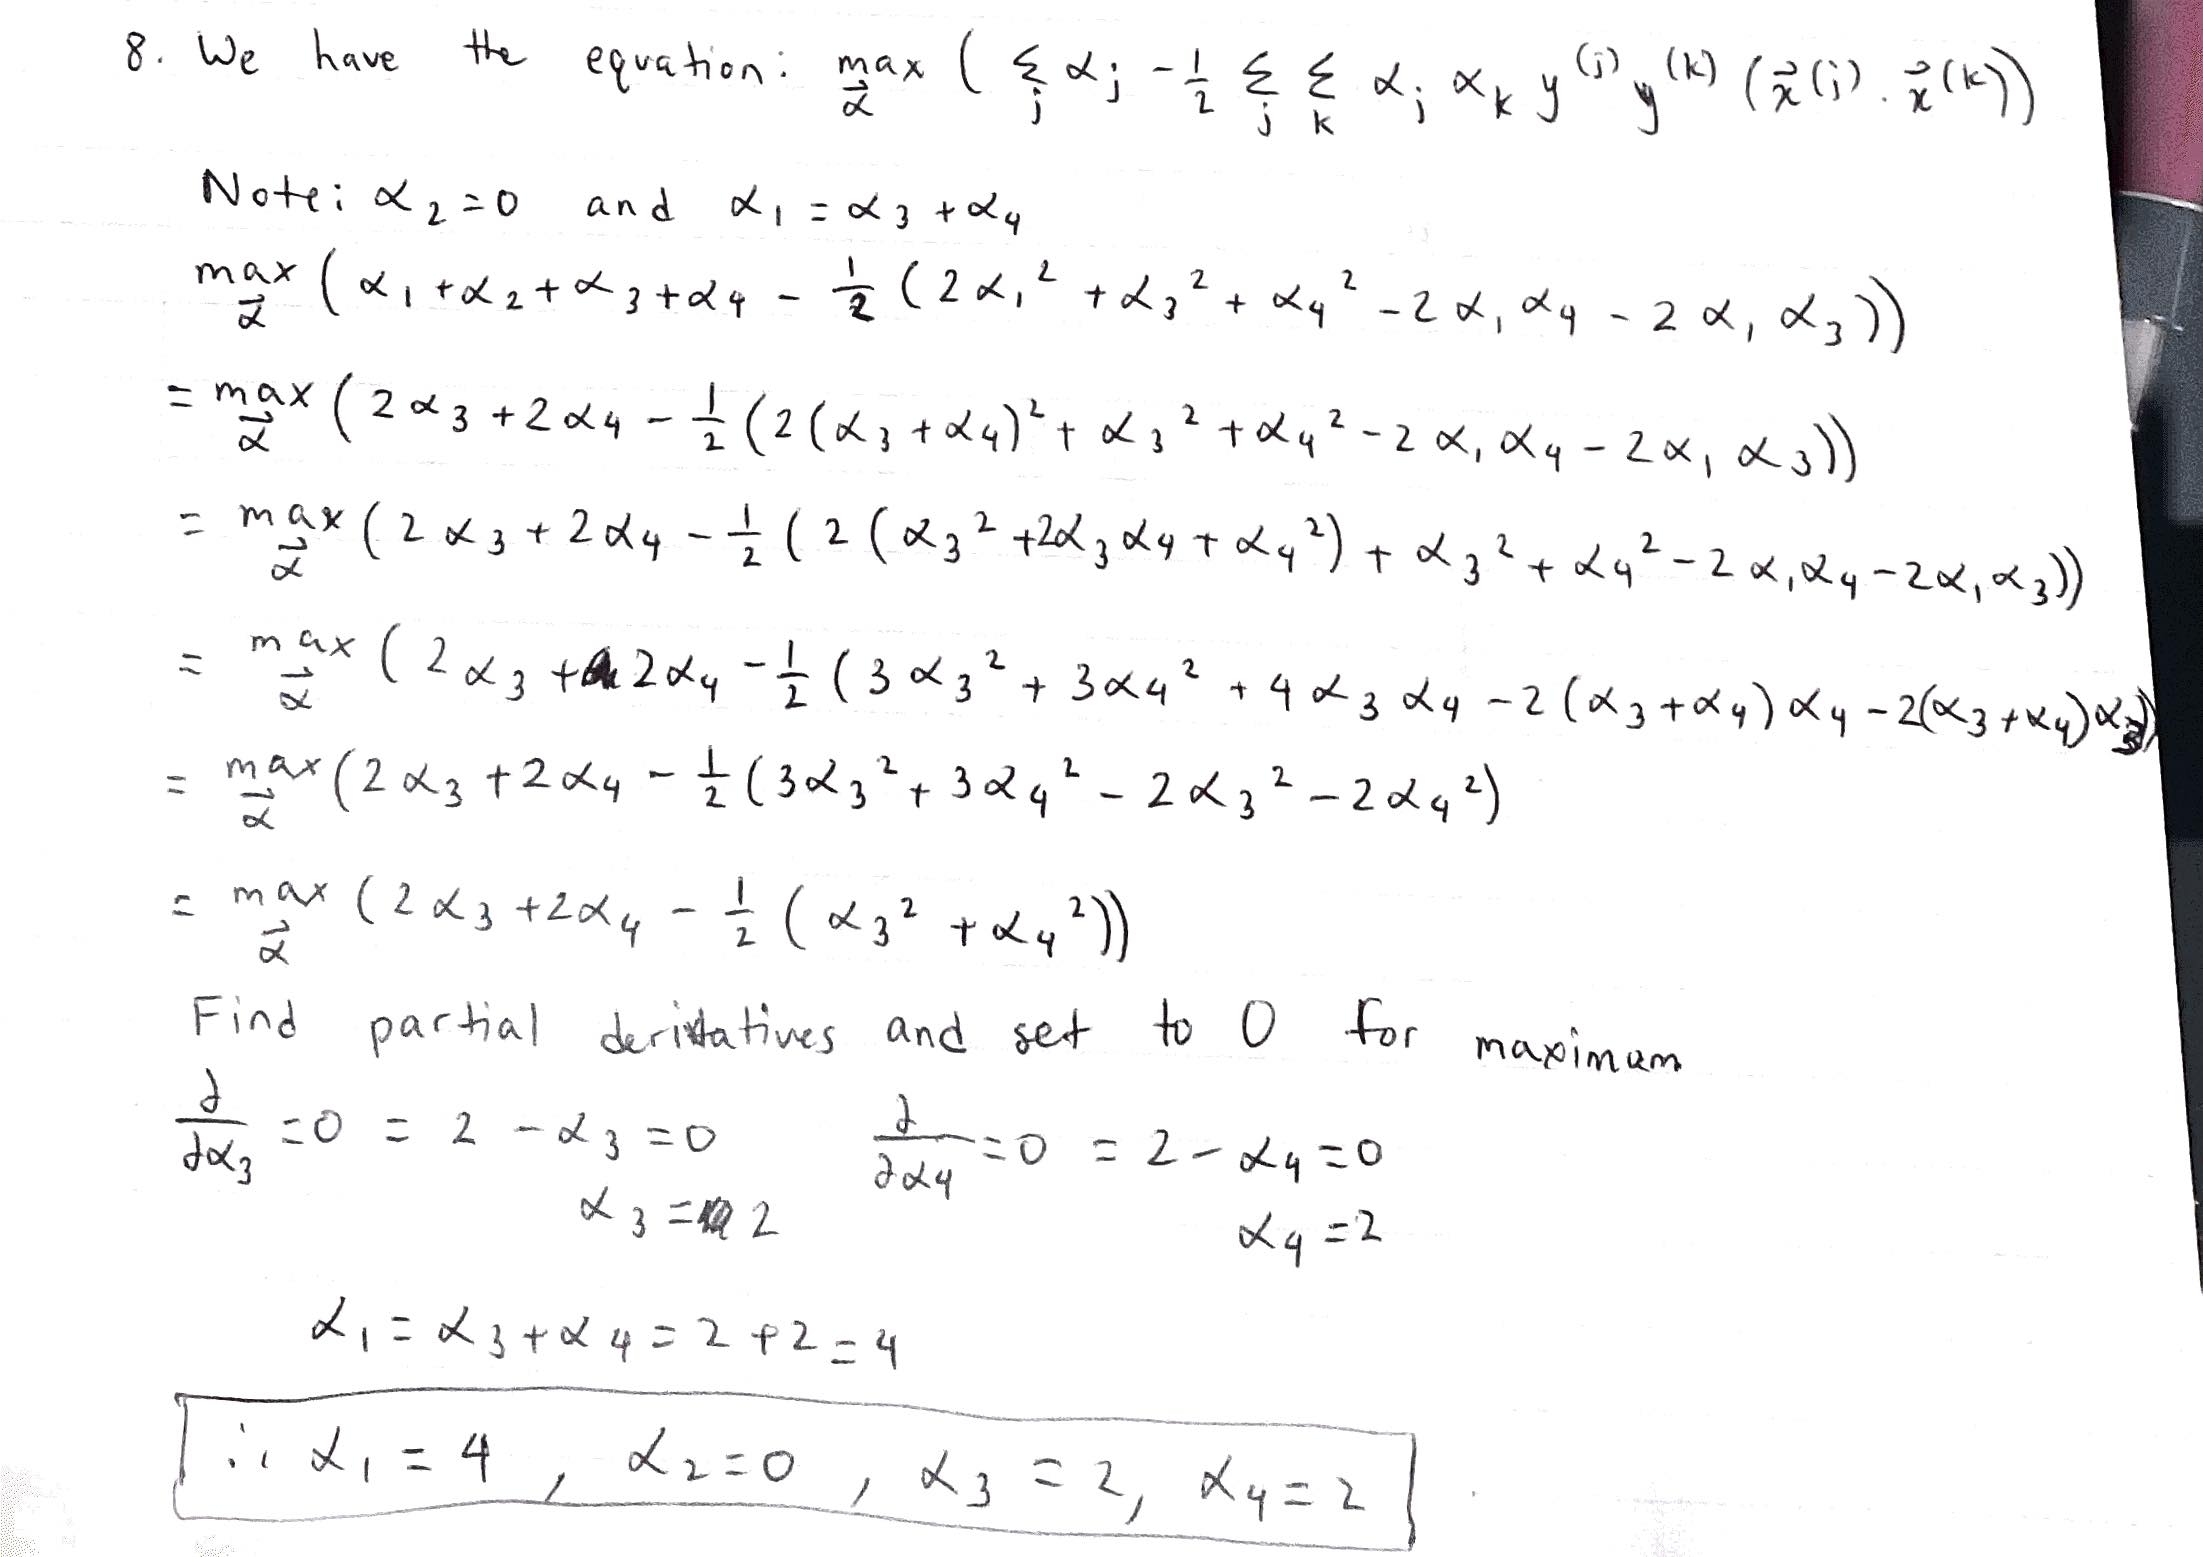 8. We have the equation: max α⃗ ( Σ j αj - 1/2 Σ j Σ k αj αk y^(j) y^(k) (x⃗^(j) · x⃗^(k)))
Note: α₂=0 and α₁ = α₃ + α₄
max α⃗ ( α₁ + α₂ + α₃ + α₄ - 1/2 ( 2α₁² + α₃² + α₄² - 2α₁α₄ - 2α₁α₃))
= max α⃗ ( 2α₃ + 2α₄ - 1/2 (2(α₃ + α₄)² + α₃² + α₄² - 2α₁α₄ - 2α₁α₃))
= max α⃗ ( 2α₃ + 2α₄ - 1/2 ( 2 (α₃² + 2α₃α₄ + α₄²) + α₃² + α₄² - 2α₁α₄ - 2α₁α₃))
= max α⃗ ( 2α₃ + 2α₄ - 1/2 ( 3α₃² + 3α₄² + 4α₃α₄ - 2(α₃+α₄)α₄ - 2(α₃+α₄)α₃))
= max α⃗ (2α₃ + 2α₄ - 1/2 (3α₃² + 3α₄² - 2α₃² - 2α₄²)
= max α⃗ (2α₃ + 2α₄ - 1/2 ( α₃² + α₄²))
Find partial derivatives and set to 0 for maximum
∂/∂α₃ = 0 = 2 - α₃ = 0 ∂/∂α₄ = 0 = 2 - α₄ = 0
α₃ = 2 α₄ = 2
α₁ = α₃ + α₄ = 2 + 2 = 4
∴ α₁ = 4 , α₂ = 0 , α₃ = 2, α₄ = 2